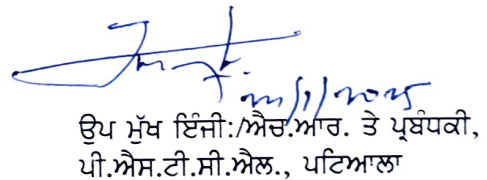 ਉਪ ਮੁੱਖ ਇੰਜੀ:/ਐਚ.ਆਰ. ਤੇ ਪ੍ਰਬੰਧਕੀ,
ਪੀ.ਐਸ.ਟੀ.ਸੀ.ਐਲ., ਪਟਿਆਲਾ